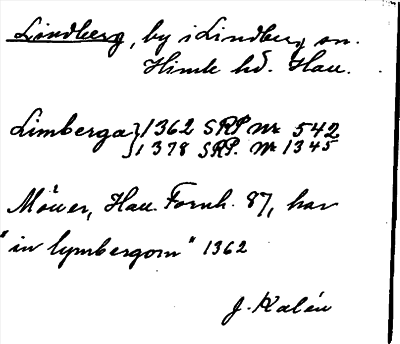 Lindberg, by i Lindberg sn.
Himle hd. Hall.
Limberga } 1362 SRP Nr 542
1378 SRP. Nr 1345
Möller, Hall. Fornh. 87, har
"in lymbergom" 1362
J. Kalén